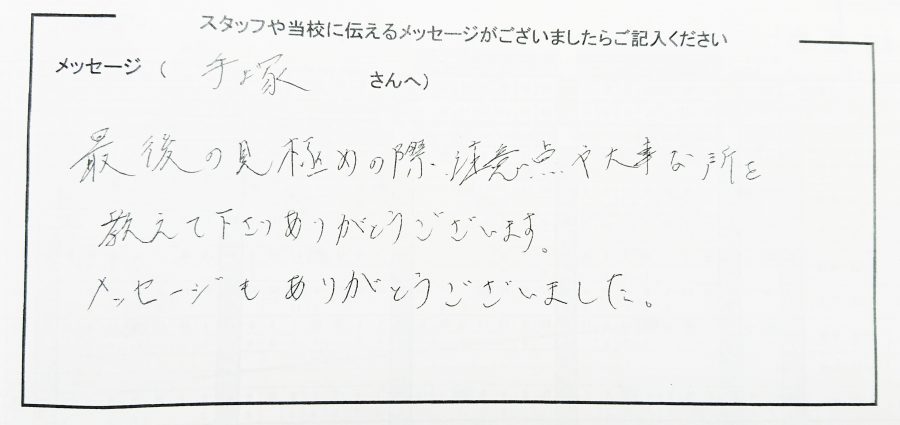 スタッフや当校に伝えるメッセージがございましたらご記入ください
メッセージ ( 手塚 さんへ)
最後の見極めの際、注意点や大事な所を
教えて下さりありがとうございます。
メッセージもありがとうございました。